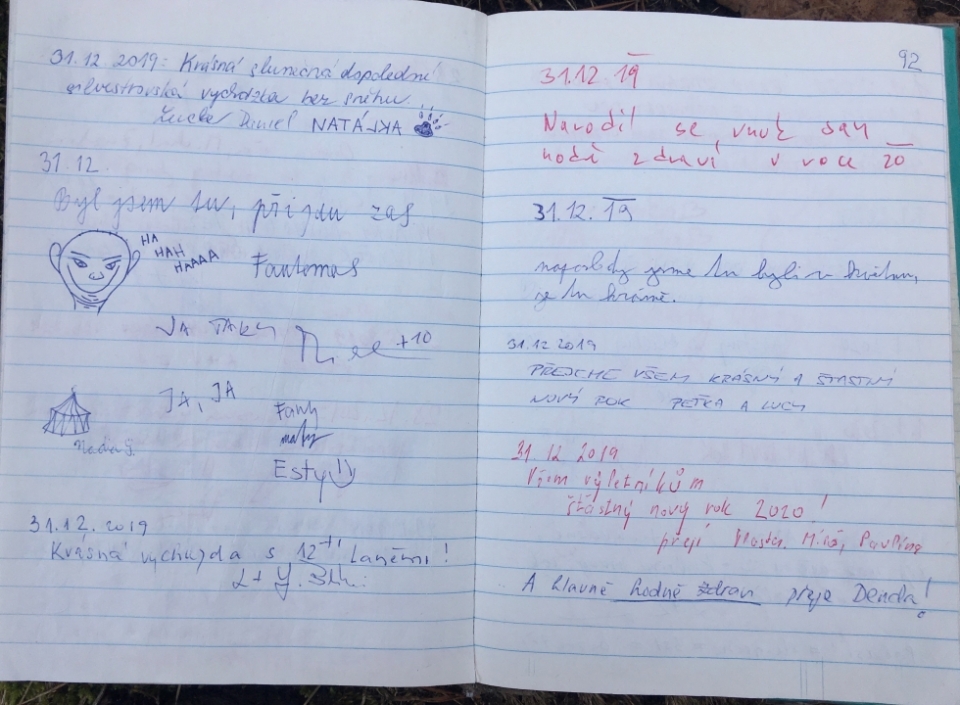 31.12.2019: Krásná slunečná dopolední
silvestrovská vycházka bez sněhu...
Daniel NATÁLKA
31.12.
Byl jsem tu, přijdu zas
HA
HAH
HAAAA
Fantomas
JA TAKY
+10
JA, JA
Fany
maty
Esty
31.12.2019
Krásná vycházda s 12-ti Laněmi!
92
31.12.19
Narodil se vnuk Jan
hodě zdraví v roce 20
31.12.19
naposledy jsme tu byli v květnu,
je tu krásně.
31.12 2019
PŘEJEME VŠEM KRÁSNÝ A ŠŤASTNÝ
NOVÝ ROK PEŤKA A LUCY
31.12 2019
Všem výletníkům
šťastný nový rok 2020!
přejí Vlasta. Míla, Pavlína
A hlavně hodně zdraví přeje Denda!